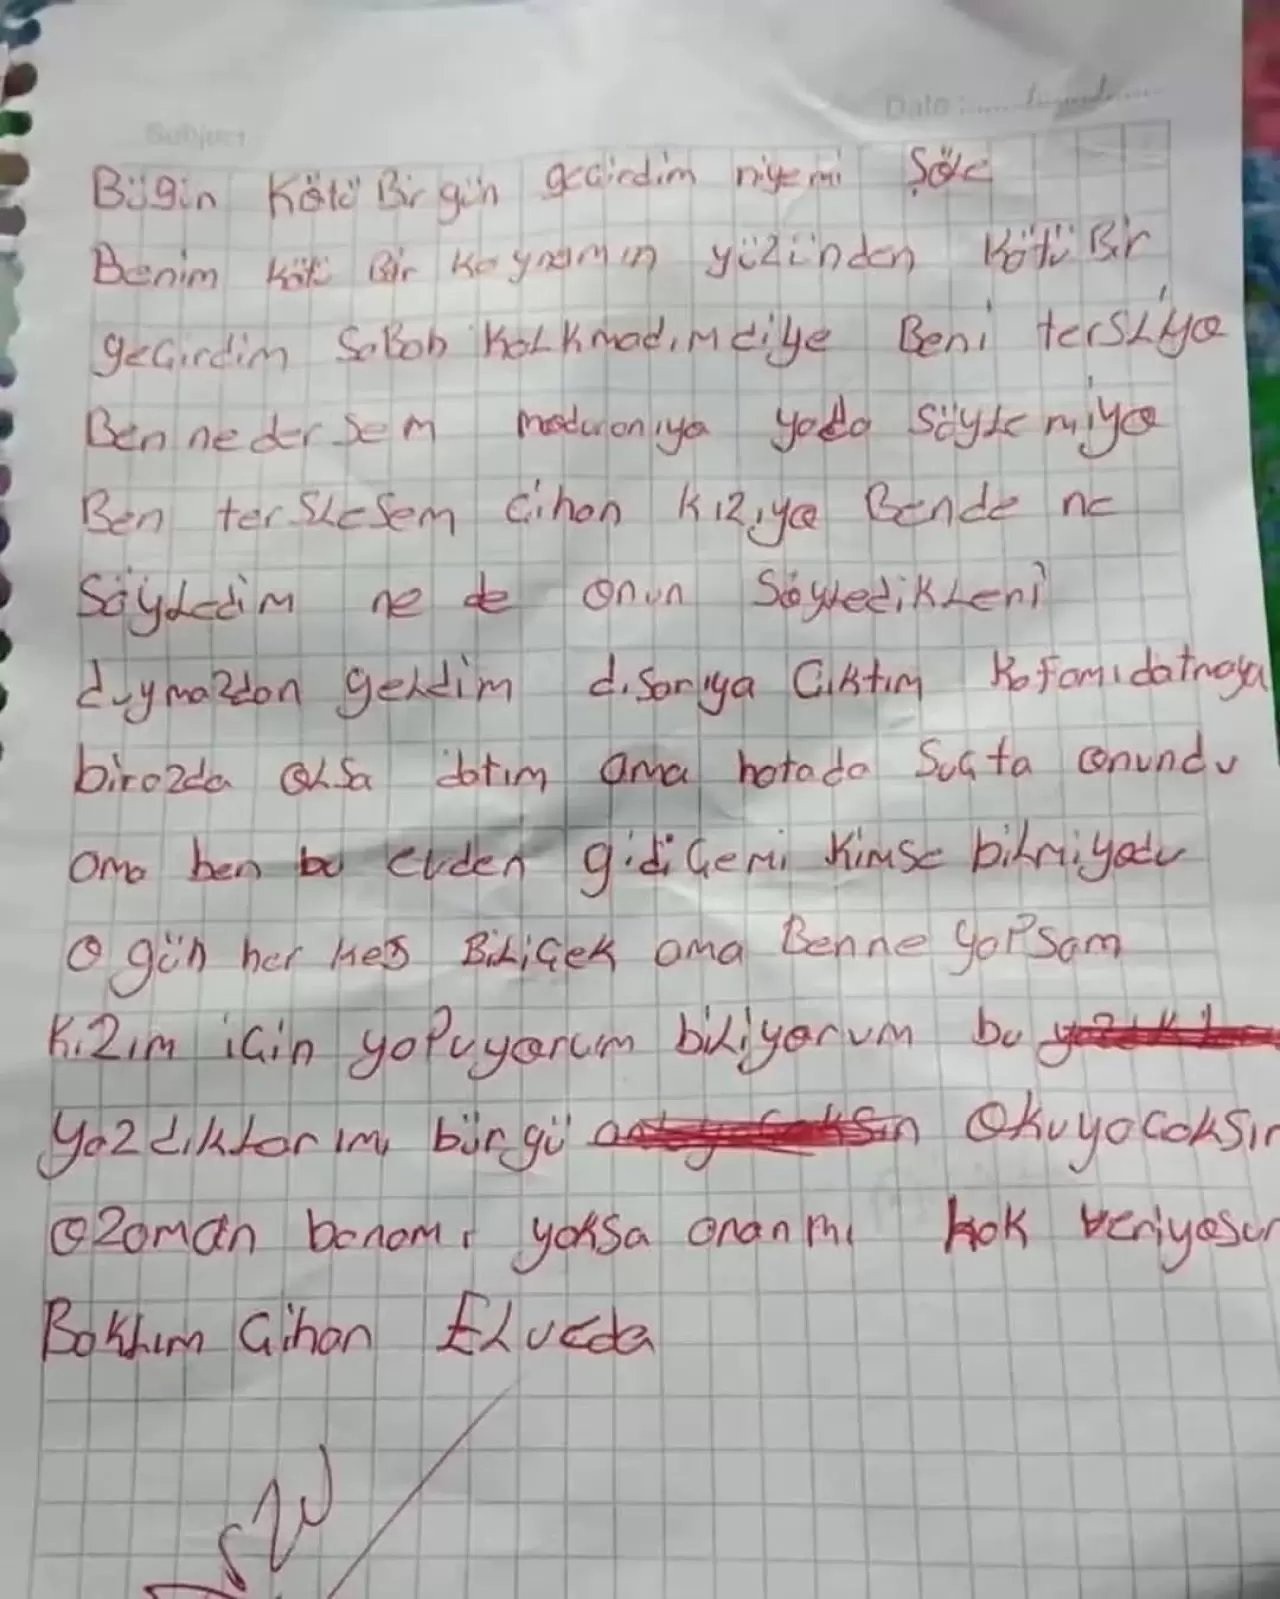 Subject
Date :
Bügin Kötü Bir gün geçirdim niyemi Şöle
Benim kötü Bir kaynamın yüzünden Kötü Bir
geçirdim SaBah KalKmadım diye Beni tersliya
Ben ne dersem madwranıya yada Söylemiya
Ben terslesem Cihan Kızıya Bende ne
Söyledim ne de onun Söyledikleni
duymazdan geldim dısarıya Çıktım Kafamıdatmaya
birazda olsa datım ama hatada Suçta onundu
ama ben bu evden gidiçemi Kimse bilmiyadu
o gün her kes Biliçek ama Ben ne yaPsam
Kızım için yaPıyorum biliyorum bu
yazdıklarımı bürgü Okuyacaksın
ozaman banamı yoksa onanmı hak veriyasun
Baklım Cihan Elveda